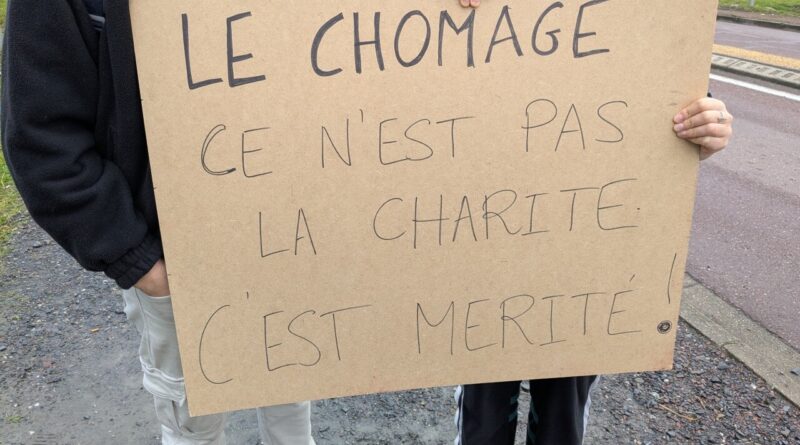 LE CHOMAGE
CE N'EST PAS
LA CHARITE.
C'EST MERITÉ !